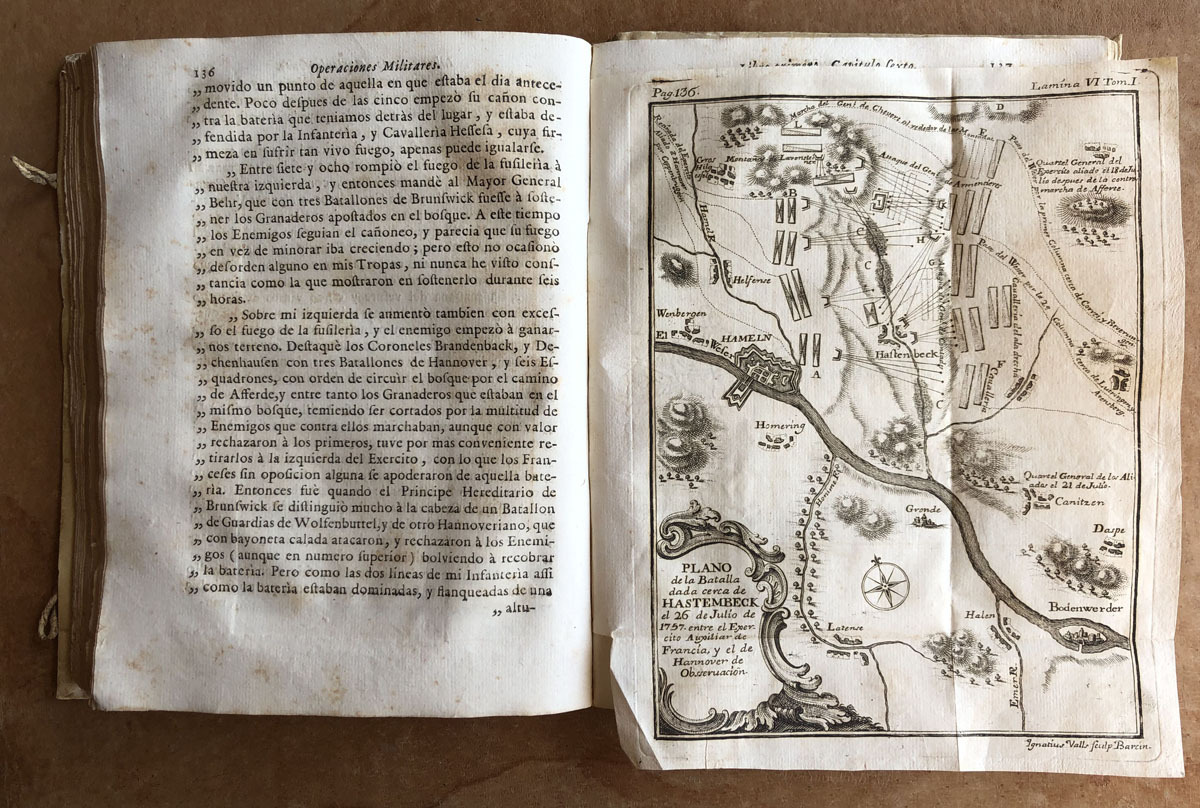 136 Operaciones Militares.
„ movido un punto de aquella en que eſtaba el dia antece-
„ dente. Poco deſpues de las cinco empezò ſu cañon con-
„ tra la baterìa que teniamos detràs del lugar, y eſtaba de-
„ fendida por la Infanterìa, y Cavallerìa Heſſeſa, cuya fir-
„ meza en ſufrir tan vivo fuego, apenas puede igualarſe.
„ Entre ſiete y ocho rompiò el fuego de la fuſilerìa à
„ nueſtra izquierda, y entonces mandè al Mayor General
„ Behr, que con tres Batallones de Brunſwick fueſſe à ſoſte-
„ ner los Granaderos apoſtados en el boſque. A eſte tiempo
„ los Enemigos ſeguian el cañoneo, y parecia que ſu fuego
„ en vez de minorar iba creciendo; pero eſto no ocaſionò
„ deſorden alguno en mis Tropas, ni nunca he viſto conſ-
„ tancia como la que moſtraron en ſoſtenerlo durante ſeis
„ horas.
„ Sobre mi izquierda ſe aumentò tambien con exceſ-
„ ſo el fuego de la fuſilerìa, y el enemigo empezò à ganar-
„ nos terreno. Deſtaquè los Coroneles Brandenback, y De-
„ chenhauſen con tres Batallones de Hannover, y ſeis Eſ-
„ quadrones, con orden de circuir el boſque por el camino
„ de Afferde, y entre tanto los Granaderos que eſtaban en el
„ miſmo boſque, temiendo ſer cortados por la multitud de
„ Enemigos que contra ellos marchaban, aunque con valor
„ rechazaron à los primeros, tuve por mas conveniente re-
„ tirarlos à la izquierda del Exercito, con lo que los Fran-
„ ceſes ſin opoſicion alguna ſe apoderaron de aquella bate-
„ rìa. Entonces fuè quando el Principe Hereditario de
„ Brunſwick ſe diſtinguiò mucho à la cabeza de un Batallon
„ de Guardias de Wolfenbuttel, y de otro Hannoveriano, que
„ con bayoneta calada atacaron, y rechazaron à los Enemi-
„ gos (aunque en numero ſuperior) bolviendo à recobrar
„ la baterìa. Pero como las dos lineas de mi Infanterìa aſſi
„ como la baterìa eſtaban dominadas, y flanqueadas de una
„ altu-
Libro primero. Capitulo Sexto. 137
Pag. 136. Lamina VI Tom. I
Marcha del Gen.l de Chevert al rededor de las Montañas
D
L
E
Quartel General del
Exercito aliado el 18 de Ju-
lio despues de la contra
marcha de Afferte.
Montañas de Lavenstein
Ataque del Gen.
Armentieres
B
Hamel R.
C
H
G
C
Helfense
Paso del Weser por la 2.a Columna cerca de
Cavalleria del ala derecha
Wenbergen
El Weser
HAMELN
A
Hastenbeck
Cavalleria
Homering
Quartel General de los Ali-
ados el 21 de Julio.
Canitzen
Gronde
Daspe
PLANO
de la Batalla
dada cerca de
HASTEMBECK
el 26 de Julio de
1757. entre el Exer-
cito Auxiliar de
Francia, y el de
Hannover de
Observaciòn.
Latense
Halen
Bodenwerder
Emer R.
Ignatius Valls sculp Barcin.